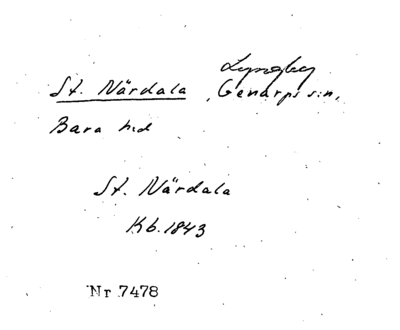 Lyngby
St. Närdala, Genarps s:n,
Bara hd
St. Närdala
Kb. 1843
Nr 7478